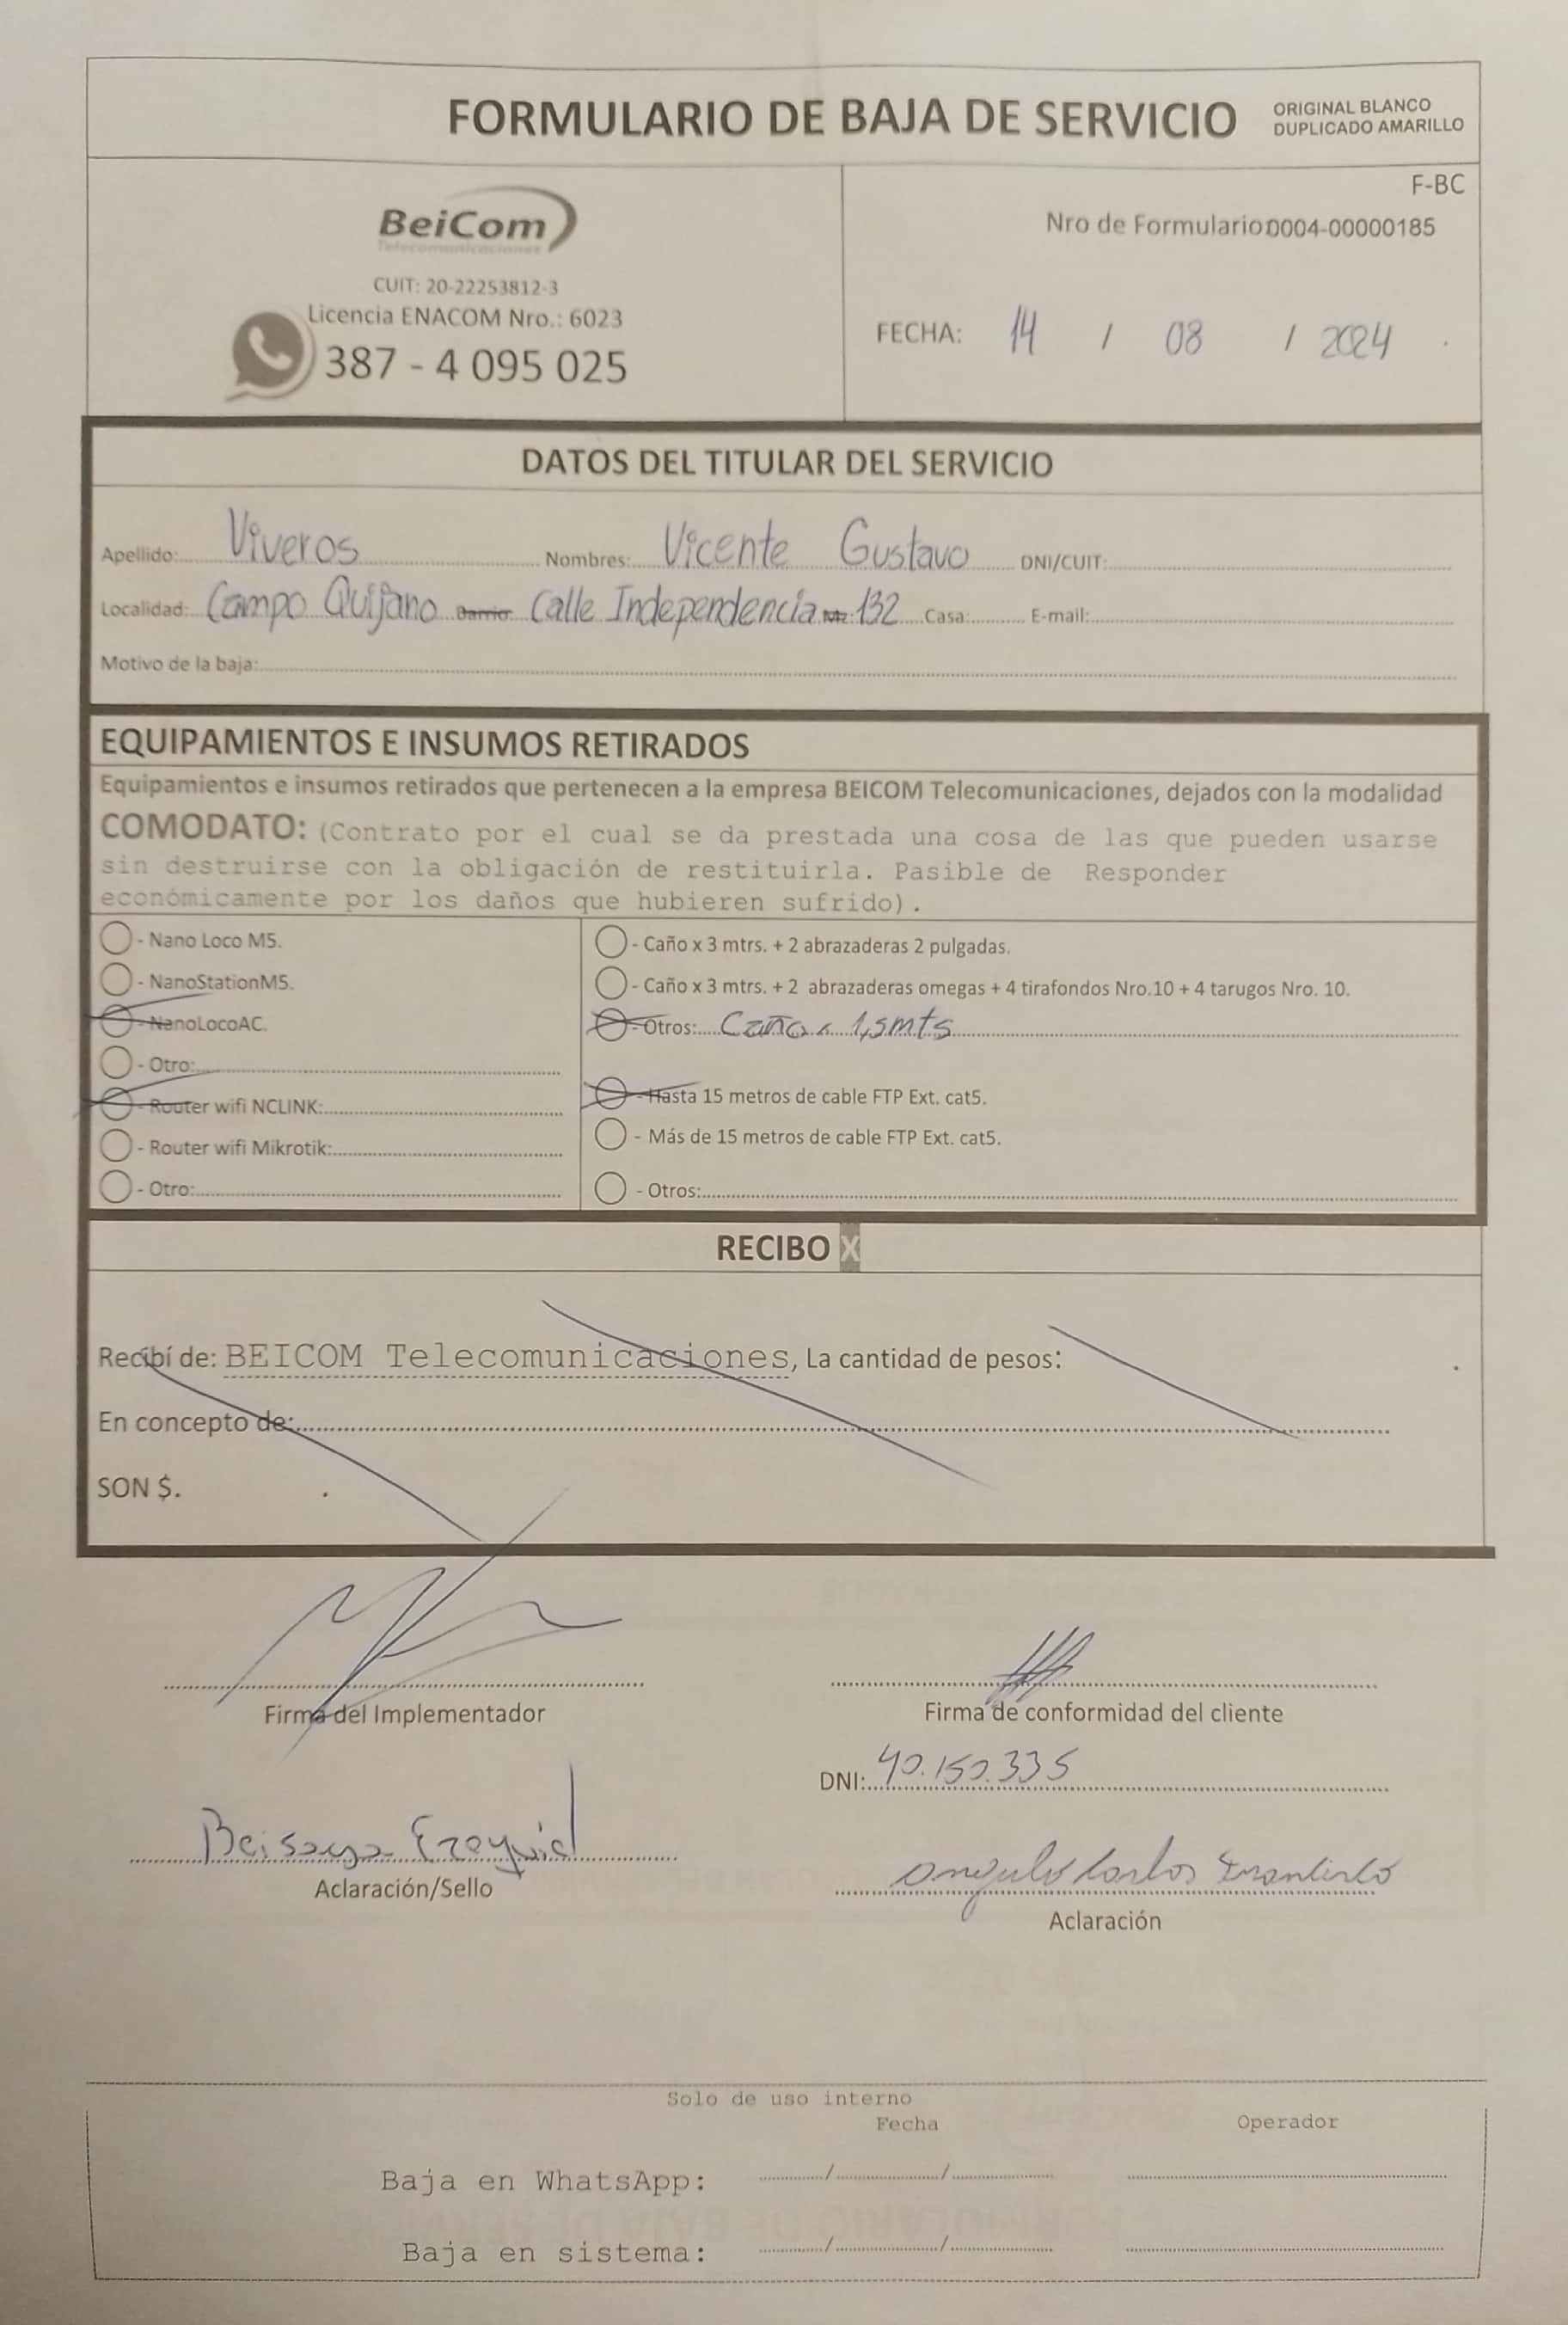 FORMULARIO DE BAJA DE SERVICIO
ORIGINAL BLANCO
DUPLICADO AMARILLO
BeiCom
Telecomunicaciones
CUIT: 20-22253812-3
Licencia ENACOM Nro.: 6023
387 - 4 095 025
F-BC
Nro de Formulario 0004-00000185
FECHA: 14 / 08 / 2024
DATOS DEL TITULAR DEL SERVICIO
Apellido: Viveros Nombres: Vicente Gustavo DNI/CUIT:
Localidad: Campo Quijano Barrio: Calle Independencia Mz: 132 Casa: E-mail:
Motivo de la baja:
EQUIPAMIENTOS E INSUMOS RETIRADOS
Equipamientos e insumos retirados que pertenecen a la empresa BEICOM Telecomunicaciones, dejados con la modalidad
COMODATO: (Contrato por el cual se da prestada una cosa de las que pueden usarse
sin destruirse con la obligación de restituirla. Pasible de Responder
económicamente por los daños que hubieren sufrido).
- Nano Loco M5.
- NanoStationM5.
- NanoLocoAC.
- Otro:
- Router wifi NCLINK:
- Router wifi Mikrotik:
- Otro:
- Caño x 3 mtrs. + 2 abrazaderas 2 pulgadas.
- Caño x 3 mtrs. + 2 abrazaderas omegas + 4 tirafondos Nro.10 + 4 tarugos Nro. 10.
- Otros: Caño x 1,5mts
- Hasta 15 metros de cable FTP Ext. cat5.
- Más de 15 metros de cable FTP Ext. cat5.
- Otros:
RECIBO X
Recibí de: BEICOM Telecomunicaciones, La cantidad de pesos:
En concepto de:
SON $.
Firma del Implementador
Firma de conformidad del cliente
DNI: 40.150.335
Beisaga Ezequiel
Aclaración/Sello
Angulo Carlos
Aclaración
Solo de uso interno
Fecha Operador
Baja en WhatsApp: / /
Baja en sistema: / /